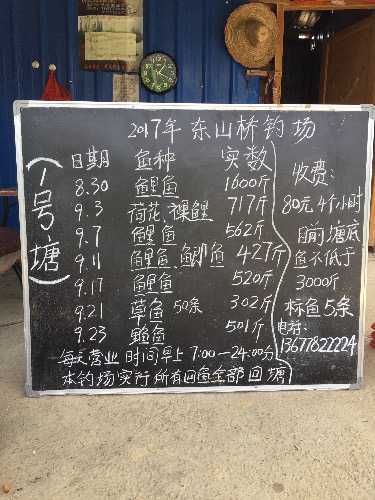 2017年 东山桥钓场
(1号塘)
日期 鱼种 实数
8.30 鲤鱼 1600斤
9.3 荷花、裸鲤 717斤
9.7 鲤鱼 562斤
9.11 鲤鱼、鲫鱼 427斤
9.17 鲤鱼 520斤
9.21 草鱼 50条 302斤
9.23 鲍鱼 501斤
收费:
80元4个小时
目前塘底
鱼不低于
3000斤
标鱼5条
电话:
13677822224
每天营业时间早上7:00—24:00分
本钓场实行所有回鱼全部回塘